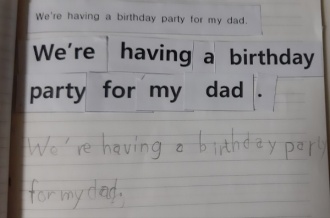 We're having a birthday party for my dad.
We're having a birthday
party for my dad .
We're having a birthday party
for my dad.